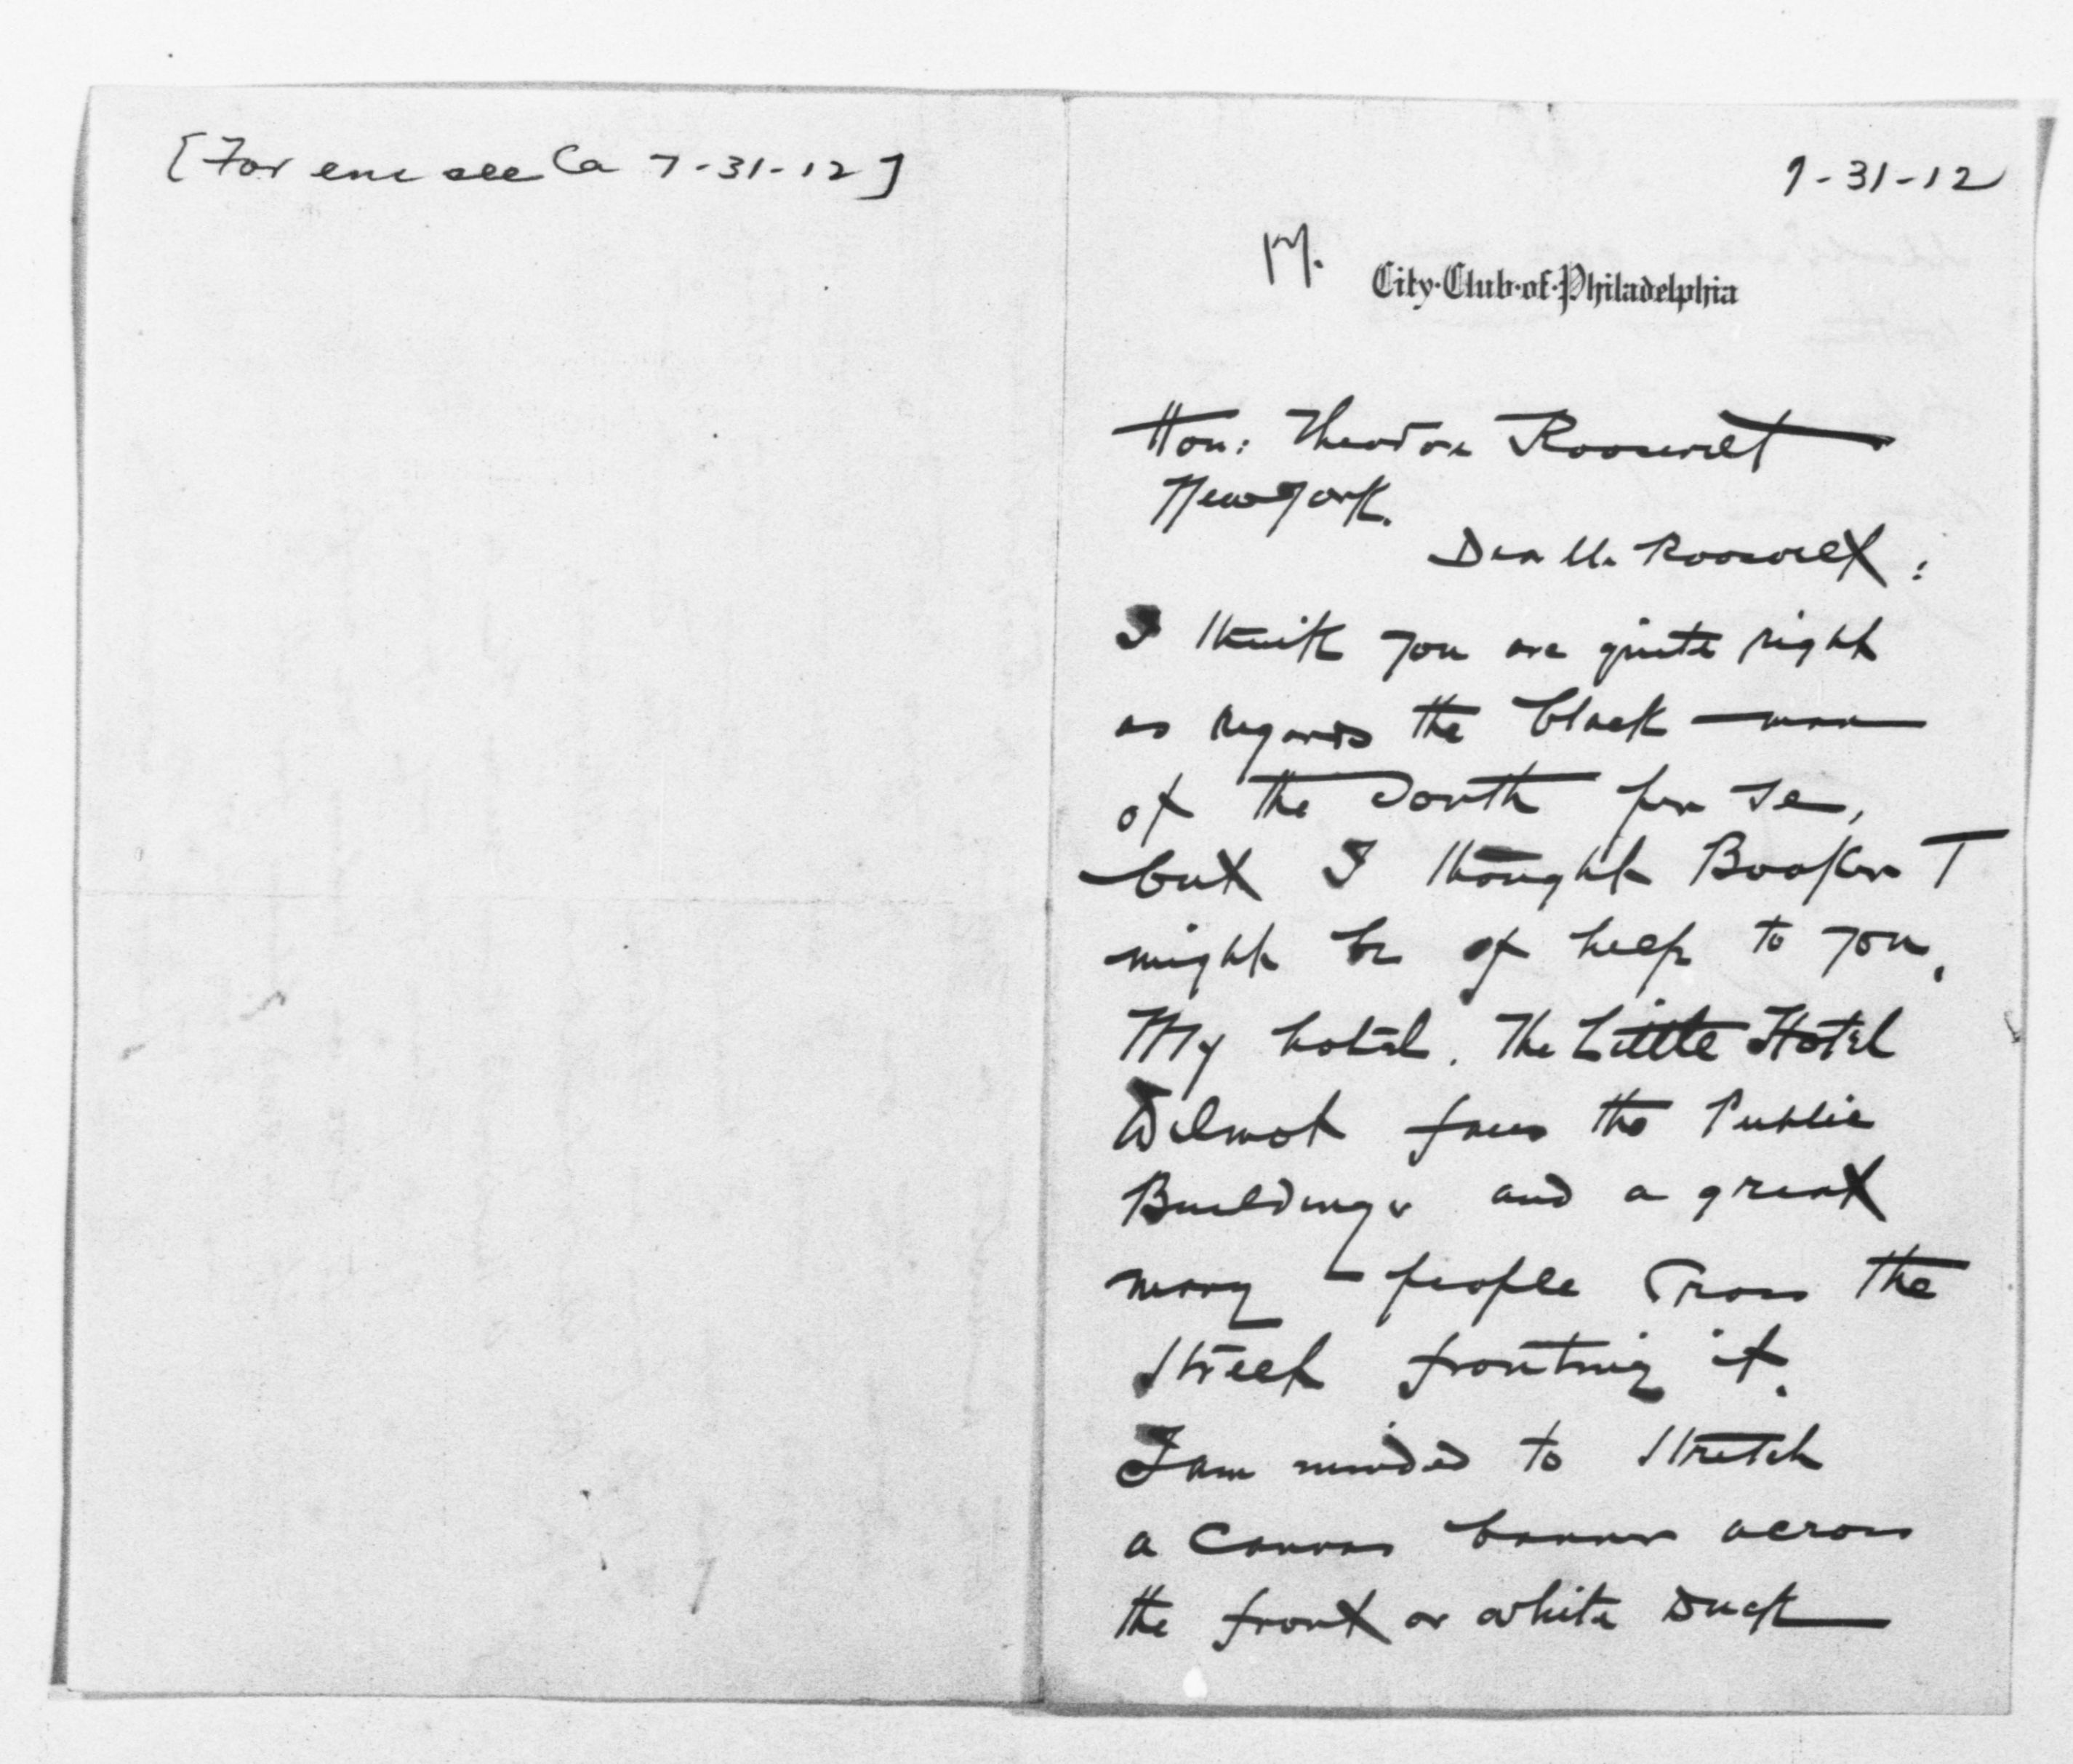 [For enc see Ca 7-31-12]
7-31-12
M.
City·Club·of·Philadelphia
Hon: Theodore Roosevelt
New York.
Dear Mr. Roosevelt:
I think you are quite right
as regards the black man
of the South per se,
but I thought Booker T
might be of help to you.
My hotel. The Little Hotel
Wilmot faces the Public
Buildings and a great
many people cross the
street fronting it.
I am minded to stretch
a canvas banner across
the front or white duck